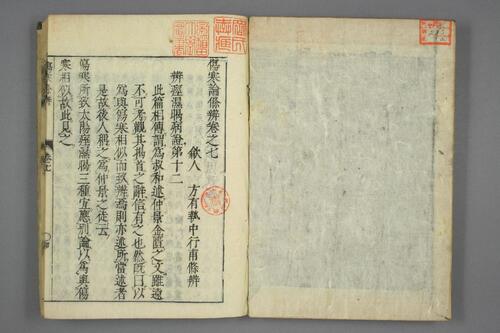 傷寒論條辨卷之七
歙人 方有執中行甫條辨
辨痙濕暍病證第十二
此篇相傳謂爲叔和述仲景金匱之文雖遠
不可考觀其揭首之辭信有之也然既曰以
爲與傷寒相似而致辨焉則亦述所當述者
是故後人稱之爲仲景之徒云
傷寒所致太陽痙濕暍三種宜應別論以爲與傷
寒相似故此見之
卷七